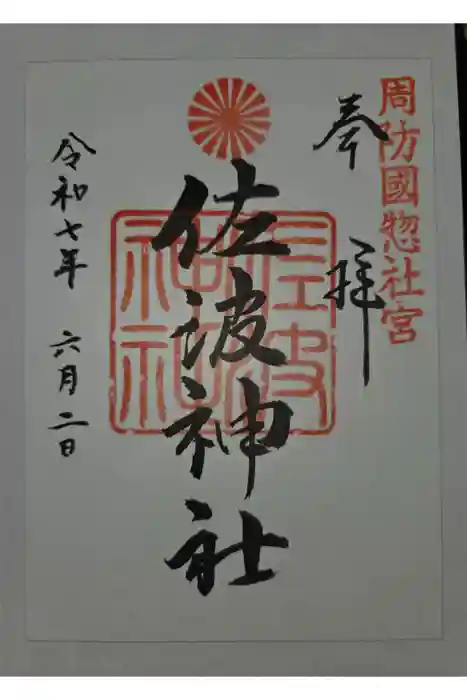 周防國惣社宮
奉拝
佐波神社
佐波神社
令和七年 六月二日